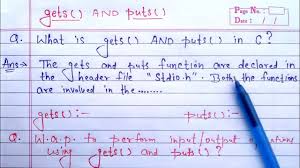 gets() AND puts()
Page No.:
Date:
Q. What is gets() AND puts() in C?
Ans→ The gets and puts function are declared in
the header file "Stdio.h". Both the functions
are involved in the........
gets():- puts():-
Q. W.a.p to perform input/output operations
using gets() and puts()?